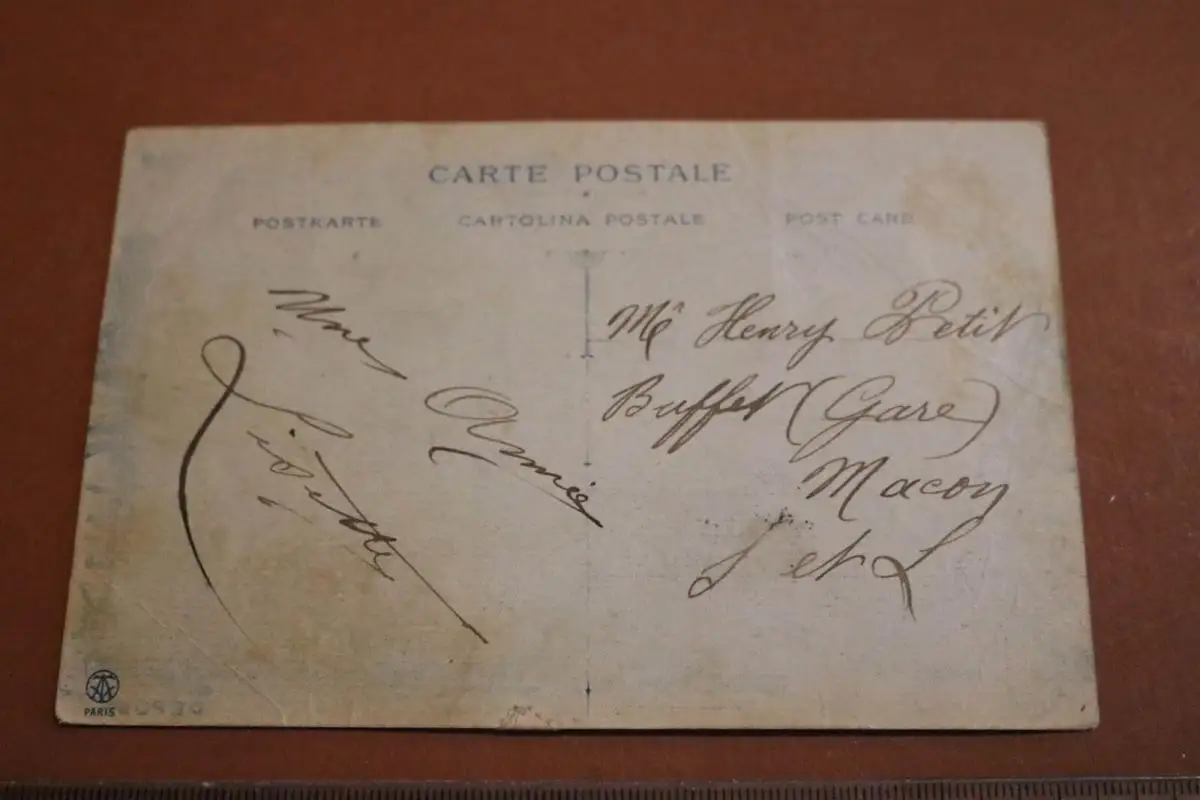 CARTE POSTALE
POSTKARTE CARTOLINA POSTALE POST CARD
Une
Amie
Lisette
Mr Henry Petit
Buffet (Gare)
Macon
S et L
PARIS